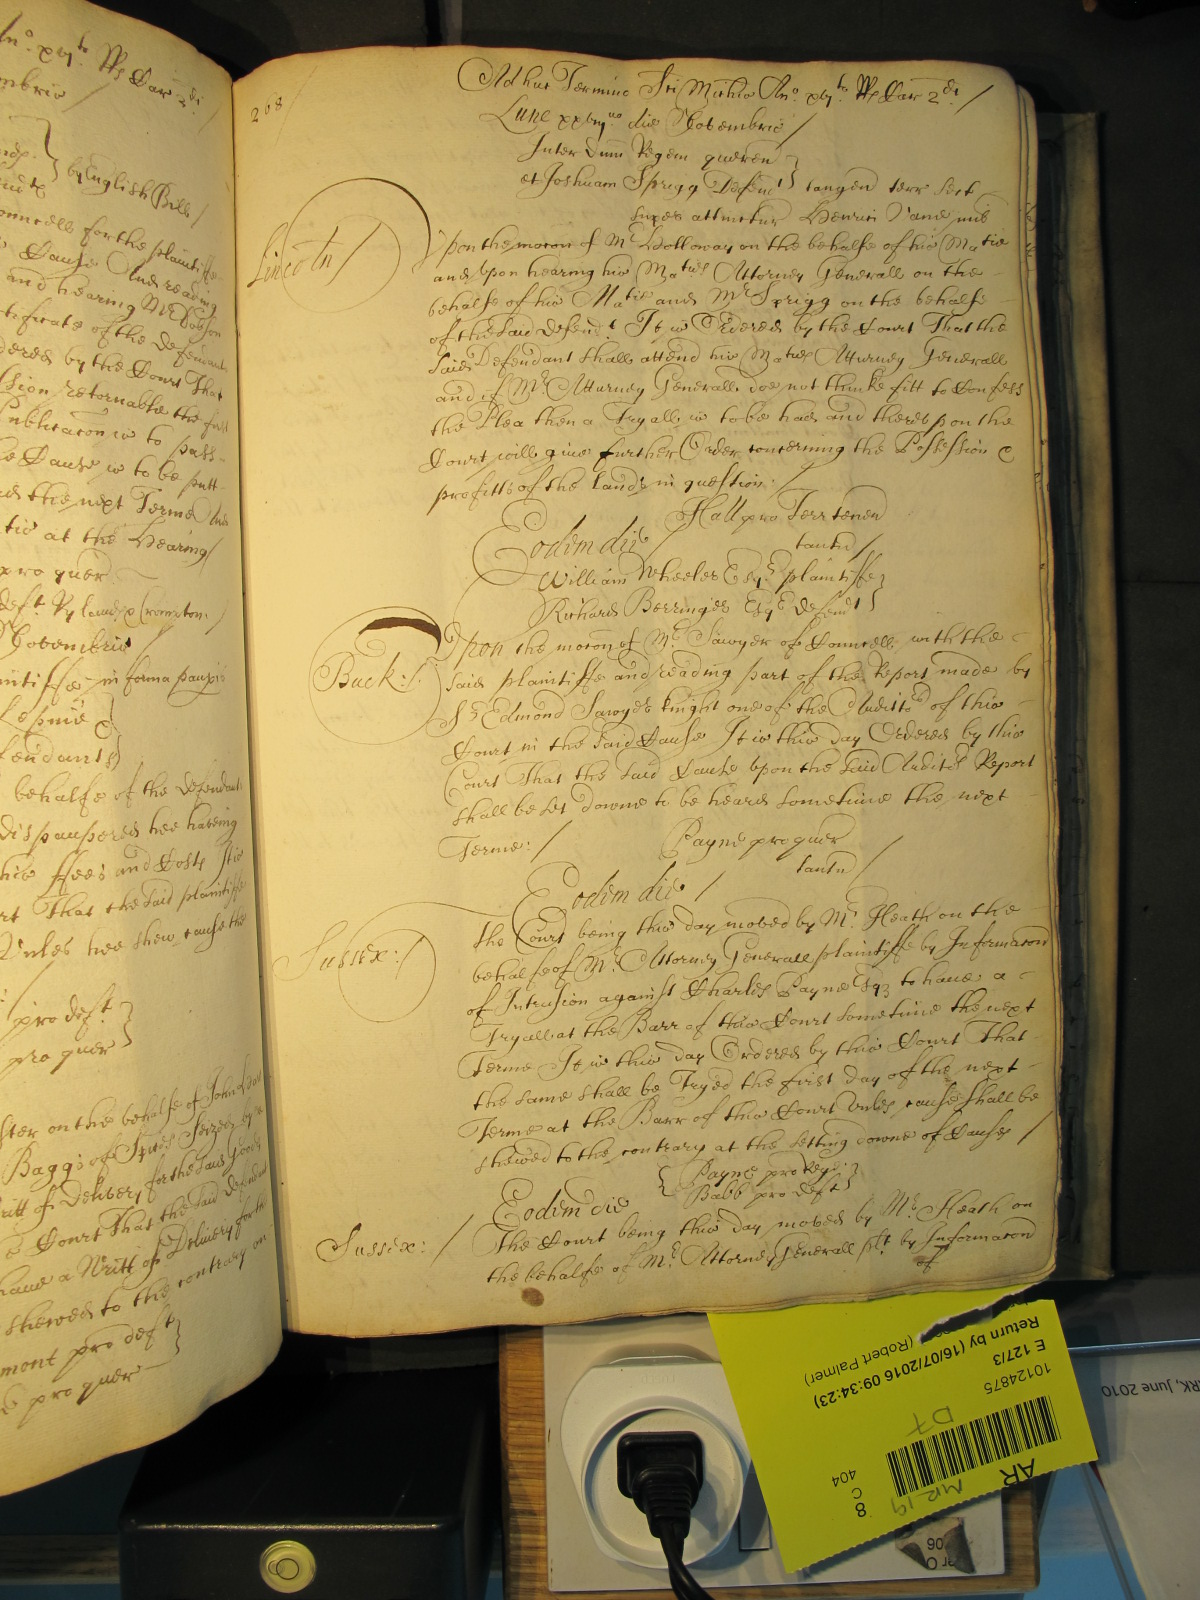 no. xvjto Rs Car 2di
embris /
by English Bill /
onncell for the plaintiffe
Cause And reading
and hearing Mr Dobson
tificate of the defendants
dered by the Court That
sion retornable the first
ublicacon is to pass
e Cause is to be putt
the next Terme And
at the Hearing /
pro quer
deft Ryland & Crompton /
Novembris
intiffe in forma paupis
fendants
behalfe of the defendant
dispaupered hee haveing
ffees and Costs It is
rt That the said plaintiffe
Unles hee shew cause the
pro deft
pro quer
ster on the behalfe of John
Baggs of Seized by
ritt of Delivery for the said Goods
e Court That the said defendant
have a Writt of Delivery for the
shewed to the contrary on
mont pro deft
pro quer
268 /
Adhuc Termino Sci Michis Ano. xvjto Rs Car 2di /
Lune xxvjto die Novembris /
Inter Dnum Regem queren
et Joshuam Sprigg Defend tangen terr sect
super attinctur Henrici Vane mil
Lincoln /
Upon the mocon of Mr Holloway on the behalfe of his Matie
and upon hearing his Maties Attorney Generall on the
behalfe of his Matie and Mr Sprigg on the behalfe
of the said defendt It is Ordered by the Court That the
said Defendant shall attend his Maties Atturney Generall
and if Mr Atturney Generall doe not thinke fitt to Confess
the Plea then a Tryall is to be had and thereupon the
Court will give further Order concerning the Possession &
profitts of the lands in question: /
Hall pro Terr tenen
tantu /
Eodem die /
William Wheeler Esqr plaintiffe
Richard Berringer Esqr defendt
Buck: /
Upon the mocon of Mr Sawyer of Councell with the
said plaintiffe and reading part of the Report made by
Sr Edmond Sawyer knight one of the Auditors of this
Court in the said Cause It is this day Ordered by this
Court That the said Cause upon the said Auditors Report
shall be set downe to be heard sometime the next
Terme: /
Payne pro quer
tantu /
Eodem die /
Sussex: /
the Court being this day moved by Mr Heath on the
behalfe of Mr Attorney Generall plaintiffe by Informacon
of Intrusion against Charles Payne Esqr to have a
Tryall at the Barr of this Court sometime the next
Terme It is this day Ordered by this Court That
the same shall be Tryed the first day of the next
Terme at the Barr of this Court Unles cause shall be
shewed to the contrary at the setting downe of Causes /
Payne pro Rege
Babb pro deft
Eodem die
Sussex: /
The Court being this day moved by Mr Heath on
the behalfe of Mr Attorney Generall plt by Informacon
of
Return by (16/07/2016 09:34:23)
(Robert Palmer)
E 127/3
10124875
D7
AR
MR 19
8
C
404
RK, June 2010